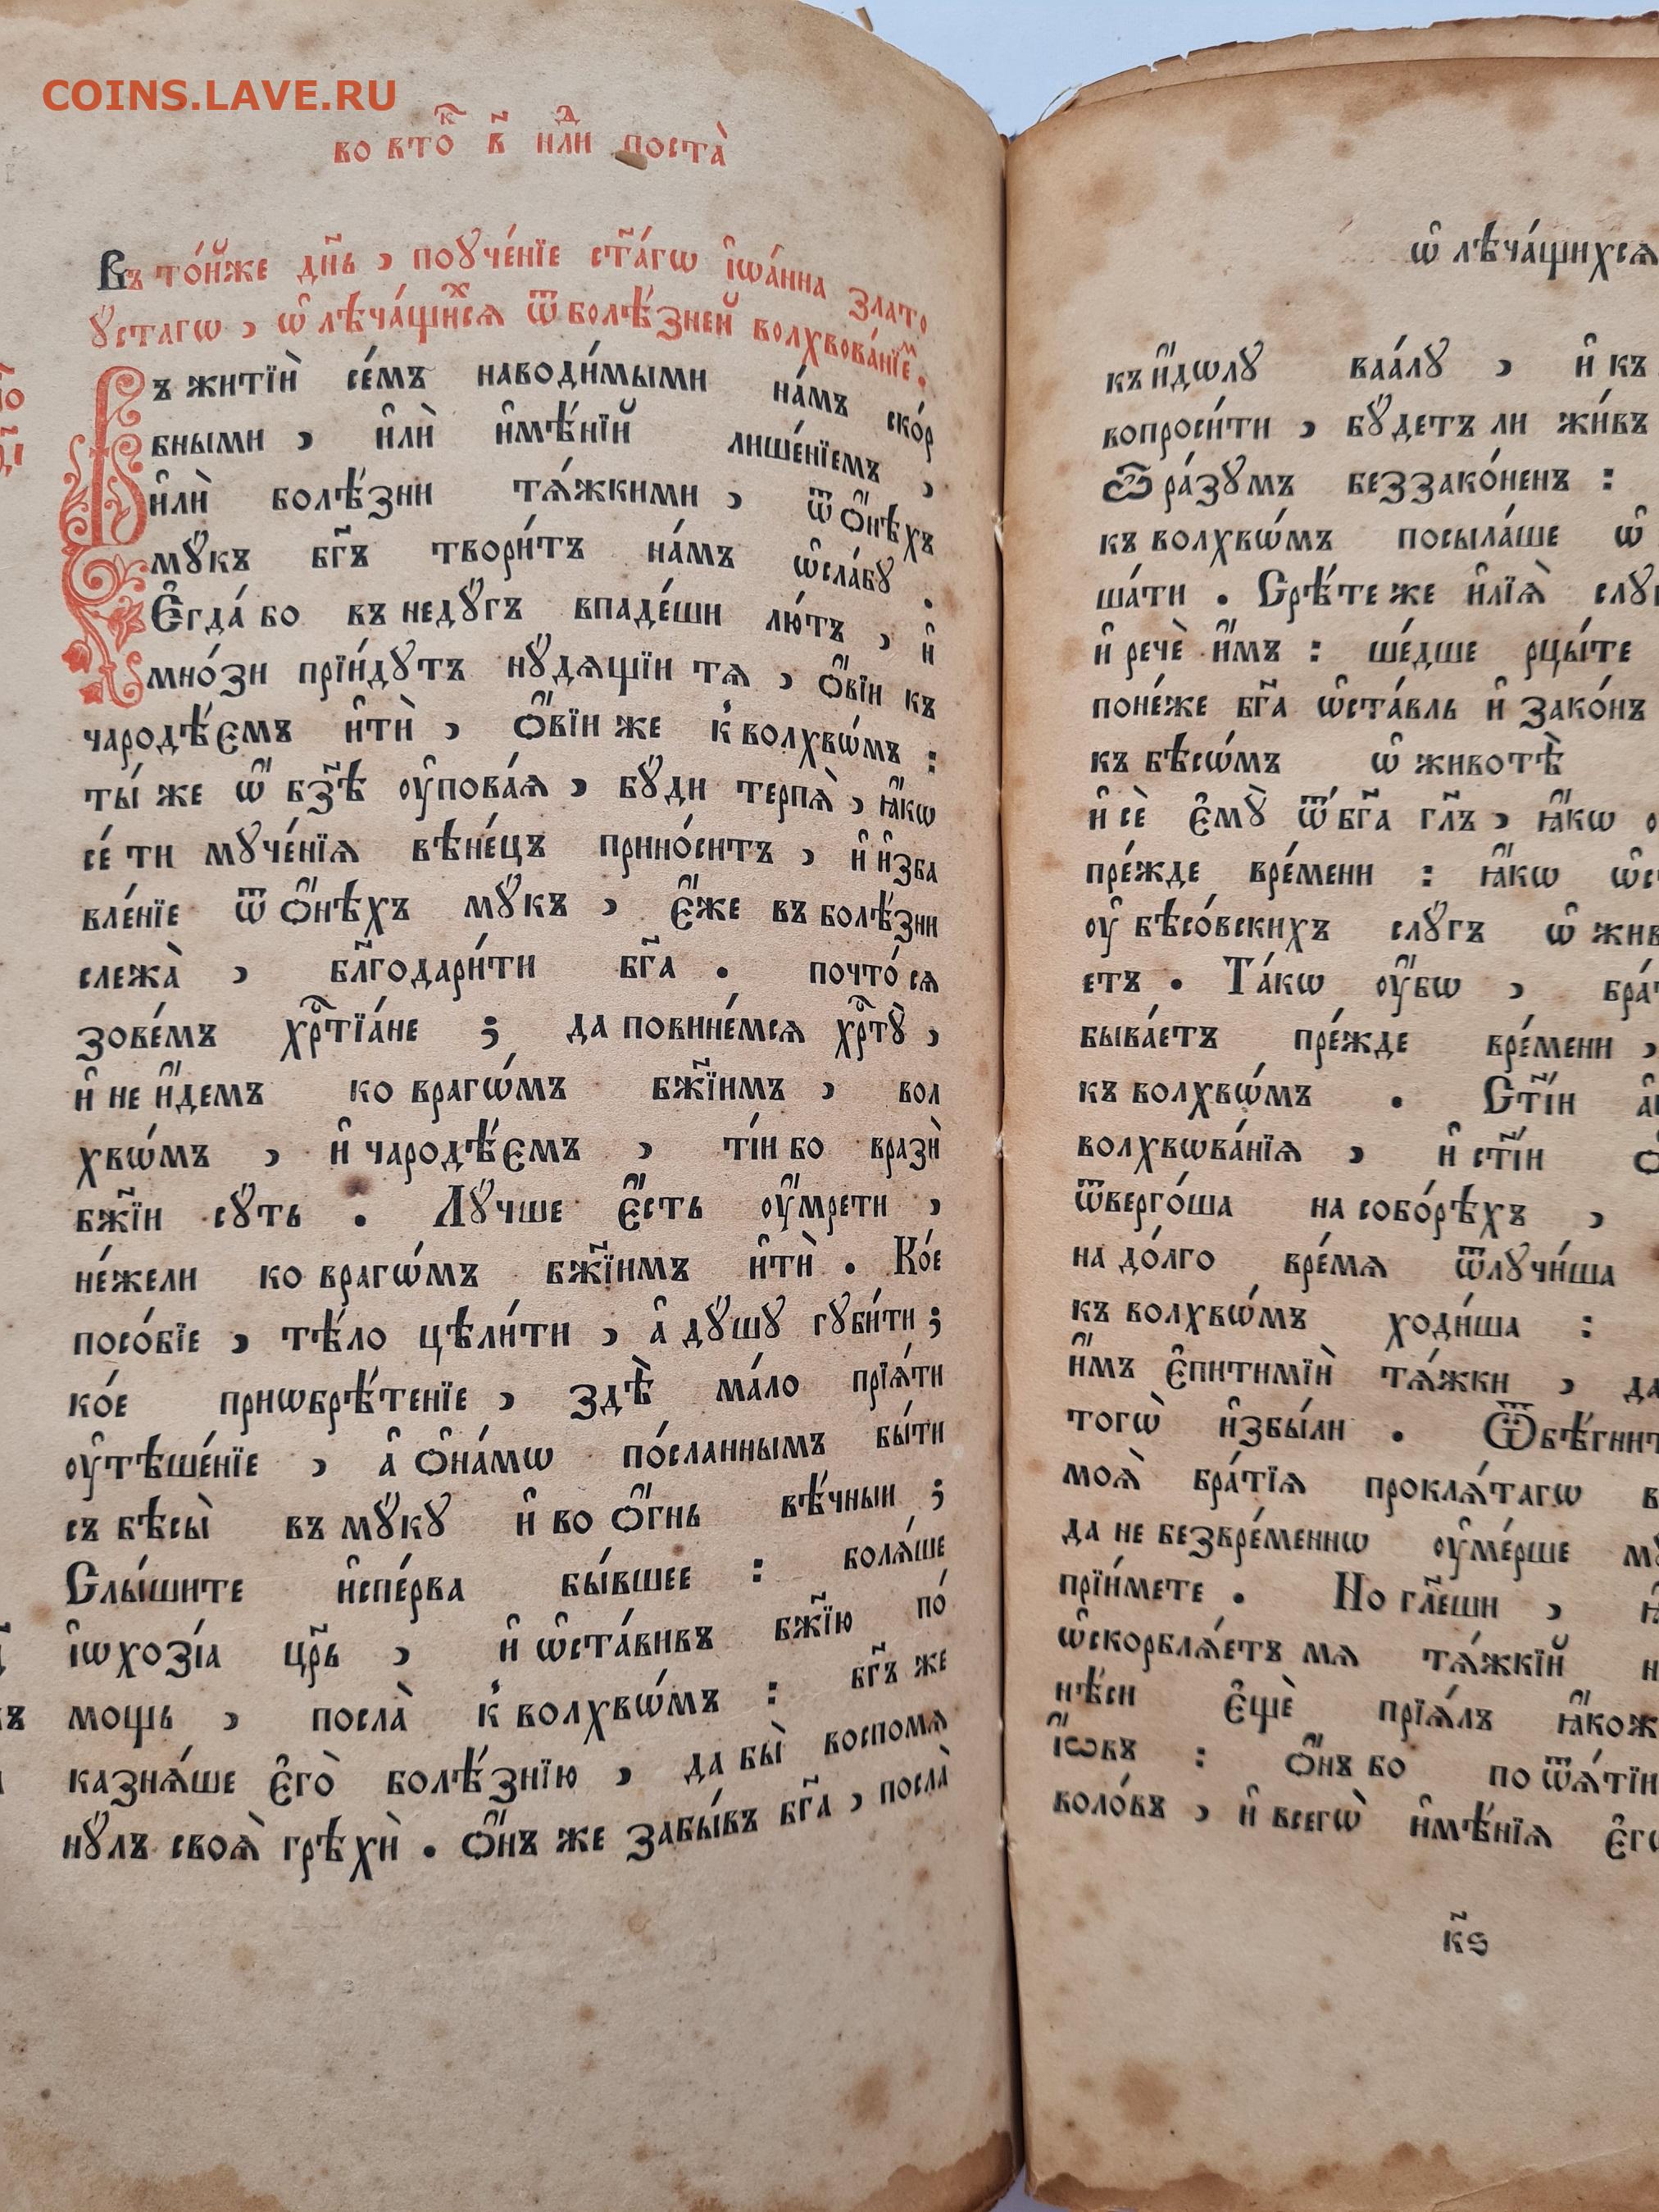 COINS.LAVE.RU
во вто҇ⷦ в҃ нлⷣи поста̀
Въ то́йже дн҃ь , поꙋче́нїе ст҃а́гѡ і҆ѡа́нна злато
ꙋстагѡ , ѡ҆ лѣча́щиⷯсѧ ѿ болѣ́зней волхвова́нїеⷨ .
ъ житїѝ се́мъ наводи́мыми на́мъ ско́р
бными , и҆лѝ и҆мѣ́нїй лише́нїемъ ,
и҆лѝ болѣ́зни тѧ́жкими , ѿ ѻ҆́нѣхъ
мꙋ́къ бг҃ъ твори́тъ на́мъ ѡ҆сла́бꙋ .
Є҆гда́ бо въ недꙋгъ впаде́ши лю́тъ , и҆
мно́зи прїи́дꙋтъ нꙋ́дѧщїи тѧ , ѻ҆́вїи къ
чародѣ́ємъ и҆тѝ , ѻ҆́вїи же к̾ волхвѡ́мъ :
ты́ же ѡ҆́ бз҃ѣ оу҆пова́ѧ , бꙋ́ди терпѧ̀ , ꙗ҆́кѡ
се́ ти мꙋче́нїѧ вѣне́цъ прино́ситъ , и҆ и҆зба
вле́нїе ѿ ѻ҆́нѣхъ мꙋ́къ , є҆́же въ болѣ́зни
слежа̀ , бл҃годари́ти бг҃а . почто́ сѧ
зове́мъ хрⷭ҇тїа́не ; да повине́мсѧ хрⷭ҇тꙋ̀ ,
и҆ не и҆́демъ ко врагѡ́мъ бж҃їимъ , вол
хвѡ́мъ , и҆ чародѣ́ємъ , ті́и бо вразѝ
бж҃їи сꙋ́ть . Лꙋ́чше є҆́сть оу҆́мрети ,
не́жели ко врагѡ́мъ бж҃їимъ и҆тѝ . Ко́е
посо́бїе , тѣ́ло цѣли́ти , а҆ дꙋ́шꙋ гꙋби́ти ;
ко́е приѡбрѣ́тенїе , здѣ̀ ма́ло прїѧ́ти
оу҆тѣше́нїе , а҆ ѻ҆на́мѡ по́сланнымъ бы́ти
съ бѣсы̀ въ мꙋ́кꙋ и҆ во ѻ҆́гнь вѣ́чныи ;
Слы́шите и҆спе́рва бы́вшее : болѧ́ше
і҆ѡхозі́а цр҃ь , и҆ ѡ҆ста́вивъ бж҃їю по́
мощь , посла̀ к̾ волхвѡ́мъ : бг҃ъ же
казнѧ́ше є҆го̀ болѣ́знїю , да бы̀ воспомѧ
нꙋ́лъ своѧ̀ грѣхѝ . Ѻ҆́нъ же забы́въ бг҃а , посла̀
ѡ҆ лѣча́щихсѧ
къ и҆́дѡлꙋ ваа́лꙋ , и҆ къ
вопроси́ти , бꙋ́детъ ли жи́въ
Ѿра́зꙋмъ беззако́ненъ :
къ волхвѡ́мъ посыла́ше ѡ҆
ша́ти . Срѣ́те же и҆лїѧ̀
и҆ речѐ и҆́мъ : ше́дше рцы́те
поне́же бг҃а ѡ҆ста́вль и҆ зако́нъ
къ бѣсѡ́мъ ѡ҆ животѣ̀
и҆ сѐ є҆мꙋ̀ ѿ бг҃а гл҃ъ , ꙗ҆́кѡ
пре́жде вре́мени : ꙗ҆́кѡ
оу҆ бѣсо́вскихъ слꙋ́гъ ѡ҆
етъ . Та́кѡ оу҆́бѡ ,
быва́етъ пре́жде вре́мени ,
къ волхвѡ́мъ . Ст҃і́и
волхвѡва́нїѧ , и҆ ст҃і́и
ѿверго́ша на собо́рѣхъ ,
на до́лго вре́мѧ ѿлꙋчи́ша
къ волхвѡ́мъ ходи́ша :
и҆́мъ є҆питимїѝ тѧ́жки , да
тогѡ̀ и҆збы́ли .
моѧ̀ бра́тїѧ проклѧ́тагѡ
да не безвре́меннѡ оу҆ме́рше
прїи́мете . Но гл҃еши ,
ѡ҆скорблѧ́етъ мѧ тѧ́жкїй
нѣ́си є҆щѐ прїѧ́лъ
і҆́ѡвъ : ѻ҆́нъ бо по
воло́въ , и҆ всегѡ̀ и҆мѣ́нїѧ
к҃ѕ